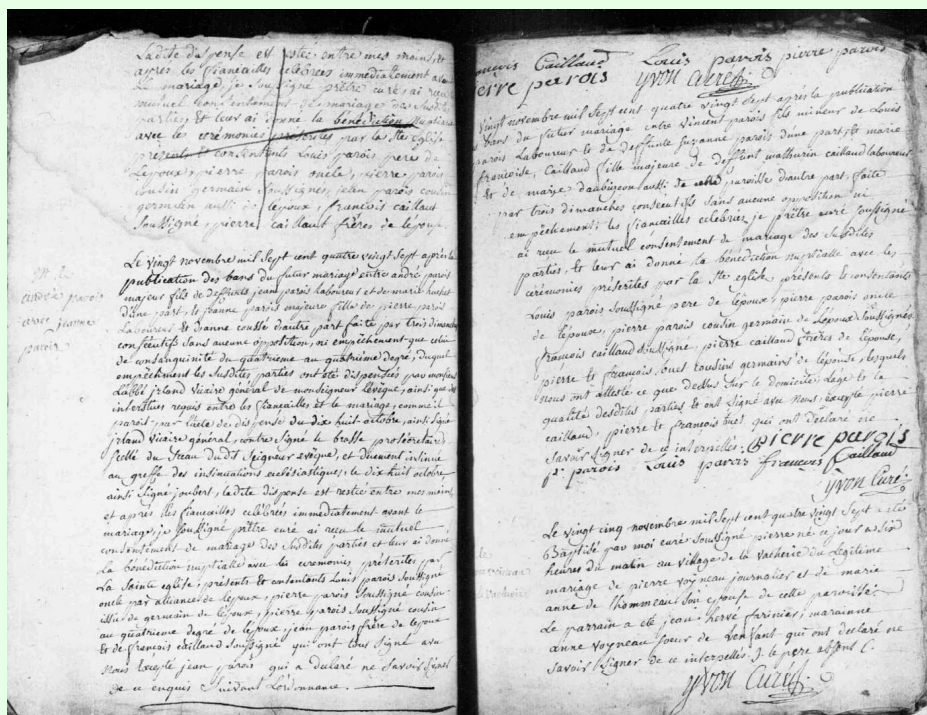 Ladite dispense est restée entre mes mains, et
après les fiancailles célébrées immédiatement
le mariage, je soussigné prêtre curé ai reçu
mutuel consentement de mariage des susdits
parties, et leur ai donné la bénédiction nuptiale
avec les cérémonies prescrites par la ste église
présents et consentants Louis parois pere de
Lepoux, pierre parois oncle, pierre parois
cousin germain soussignés, jean parois cousin
germain aussi de lepoux, francois caillaut
soussigné, pierre caillaut frères de lepouse
Le vingt novembre mil sept cent quatre vingt sept après la
publication des bans du futur mariage entre andré parois
majeur fils de deffunts jean parois laboureur et de marie
d'une part, et jeanne parois majeure fille de pierre parois
Laboureur et d'anne cousse d'autre part faite par trois dimanches
consécutifs sans aucune opposition, ni empêchement que celui
de consanguinité du quatrieme au quatrieme degré, duquel
empêchement les susdites parties ont été dispensées par monsieur
Labbé irland vicaire général de monseigneur L'évêque, ainsi que des
interstices requis entre les fiancailles et le mariage, comme il
parois par l'acte de dispense du dix huit octobre, ainsi signé
irland vicaire général, contre signé le brosse prosecrétaire
scellé du sceau dudit seigneur evêque, et duement insinué
au greffe des insinuations ecclésiastiques, le dix huit octobre,
ainsi signé joubert, ladite dispense est restée entre mes mains,
et après les fiancailles célébrées immédiatement avant le
mariage, je soussigné prêtre curé ai reçu le mutuel
consentement de mariage des susdites parties et leur ai donné
La bénédiction nuptialle avec les ceremonies préscrites par
La sainte eglise; présents et consentants Louis parois soussigné
oncle par alliance de lepoux, pierre parois soussigné cousin
issu de germain de lepoux, pierre parois soussigné cousin
au quatrieme degré de lepoux, jean parois frère de lepoux
et de francois caillaud soussigné qui ont tous signé avec
Nous excepté jean parois qui a déclaré ne savoir signer
de ce enquis suivant Lordonnance.
andré parois
avec jeanne
parois
françois Caillaud Louis parois pierre parois
pierre parois yvon curé
vingt novembre mil sept cent quatre vingt sept après la publication
bans du futur mariage entre vincent parois fils mineur de Louis
parois Laboureur et de deffunte suzanne parois d'une part, et marie
françoise Caillaud fille majeure de deffunt mathurin caillaud laboureur
et de marie daubigeon aussi de cette paroisse d'autre part, faite
par trois dimanches consecutifs sans aucune opposition ni
empêchement; les fiancailles célébrées, je prêtre curé soussigné
ai reçu le mutuel consentement de mariage des susdites
parties, et leur ai donné la bénédiction nuptialle avec les
cérémonies préscrites par la ste eglise, présents et consentants
Louis parois soussigné pere de lepoux, pierre parois oncle
de lepoux, pierre parois cousin germain de lepoux soussignés
françois caillaud soussigné, pierre caillaud freres de lepouse,
pierre et françois cousins germains de lepouse, lesquels
nous ont attesté ce que dessus sur le domicile, lage et la
qualité desdites parties et ont signé avec Nous excepté pierre
caillaud, pierre et françois qui ont déclaré ne
savoir signer de ce interpellés. pierre parois
p. parois Louis parois françois Caillaud
yvon Curé
Le vingt cinq novembre mil sept cent quatre vingt sept a été
Baptisé par moi curé soussigné pierre né ce jour a six
heures du matin au village de la vacherie du légitime
mariage de pierre voyneau journalier et de marie
anne de lhommeau son epouse de cette paroisse.
Le parrain a été jean hervé farinier, marainne
anne voyneau soeur de Lenfant qui ont déclaré ne
savoir signer de ce interpellés. le pere absent
yvon Curé